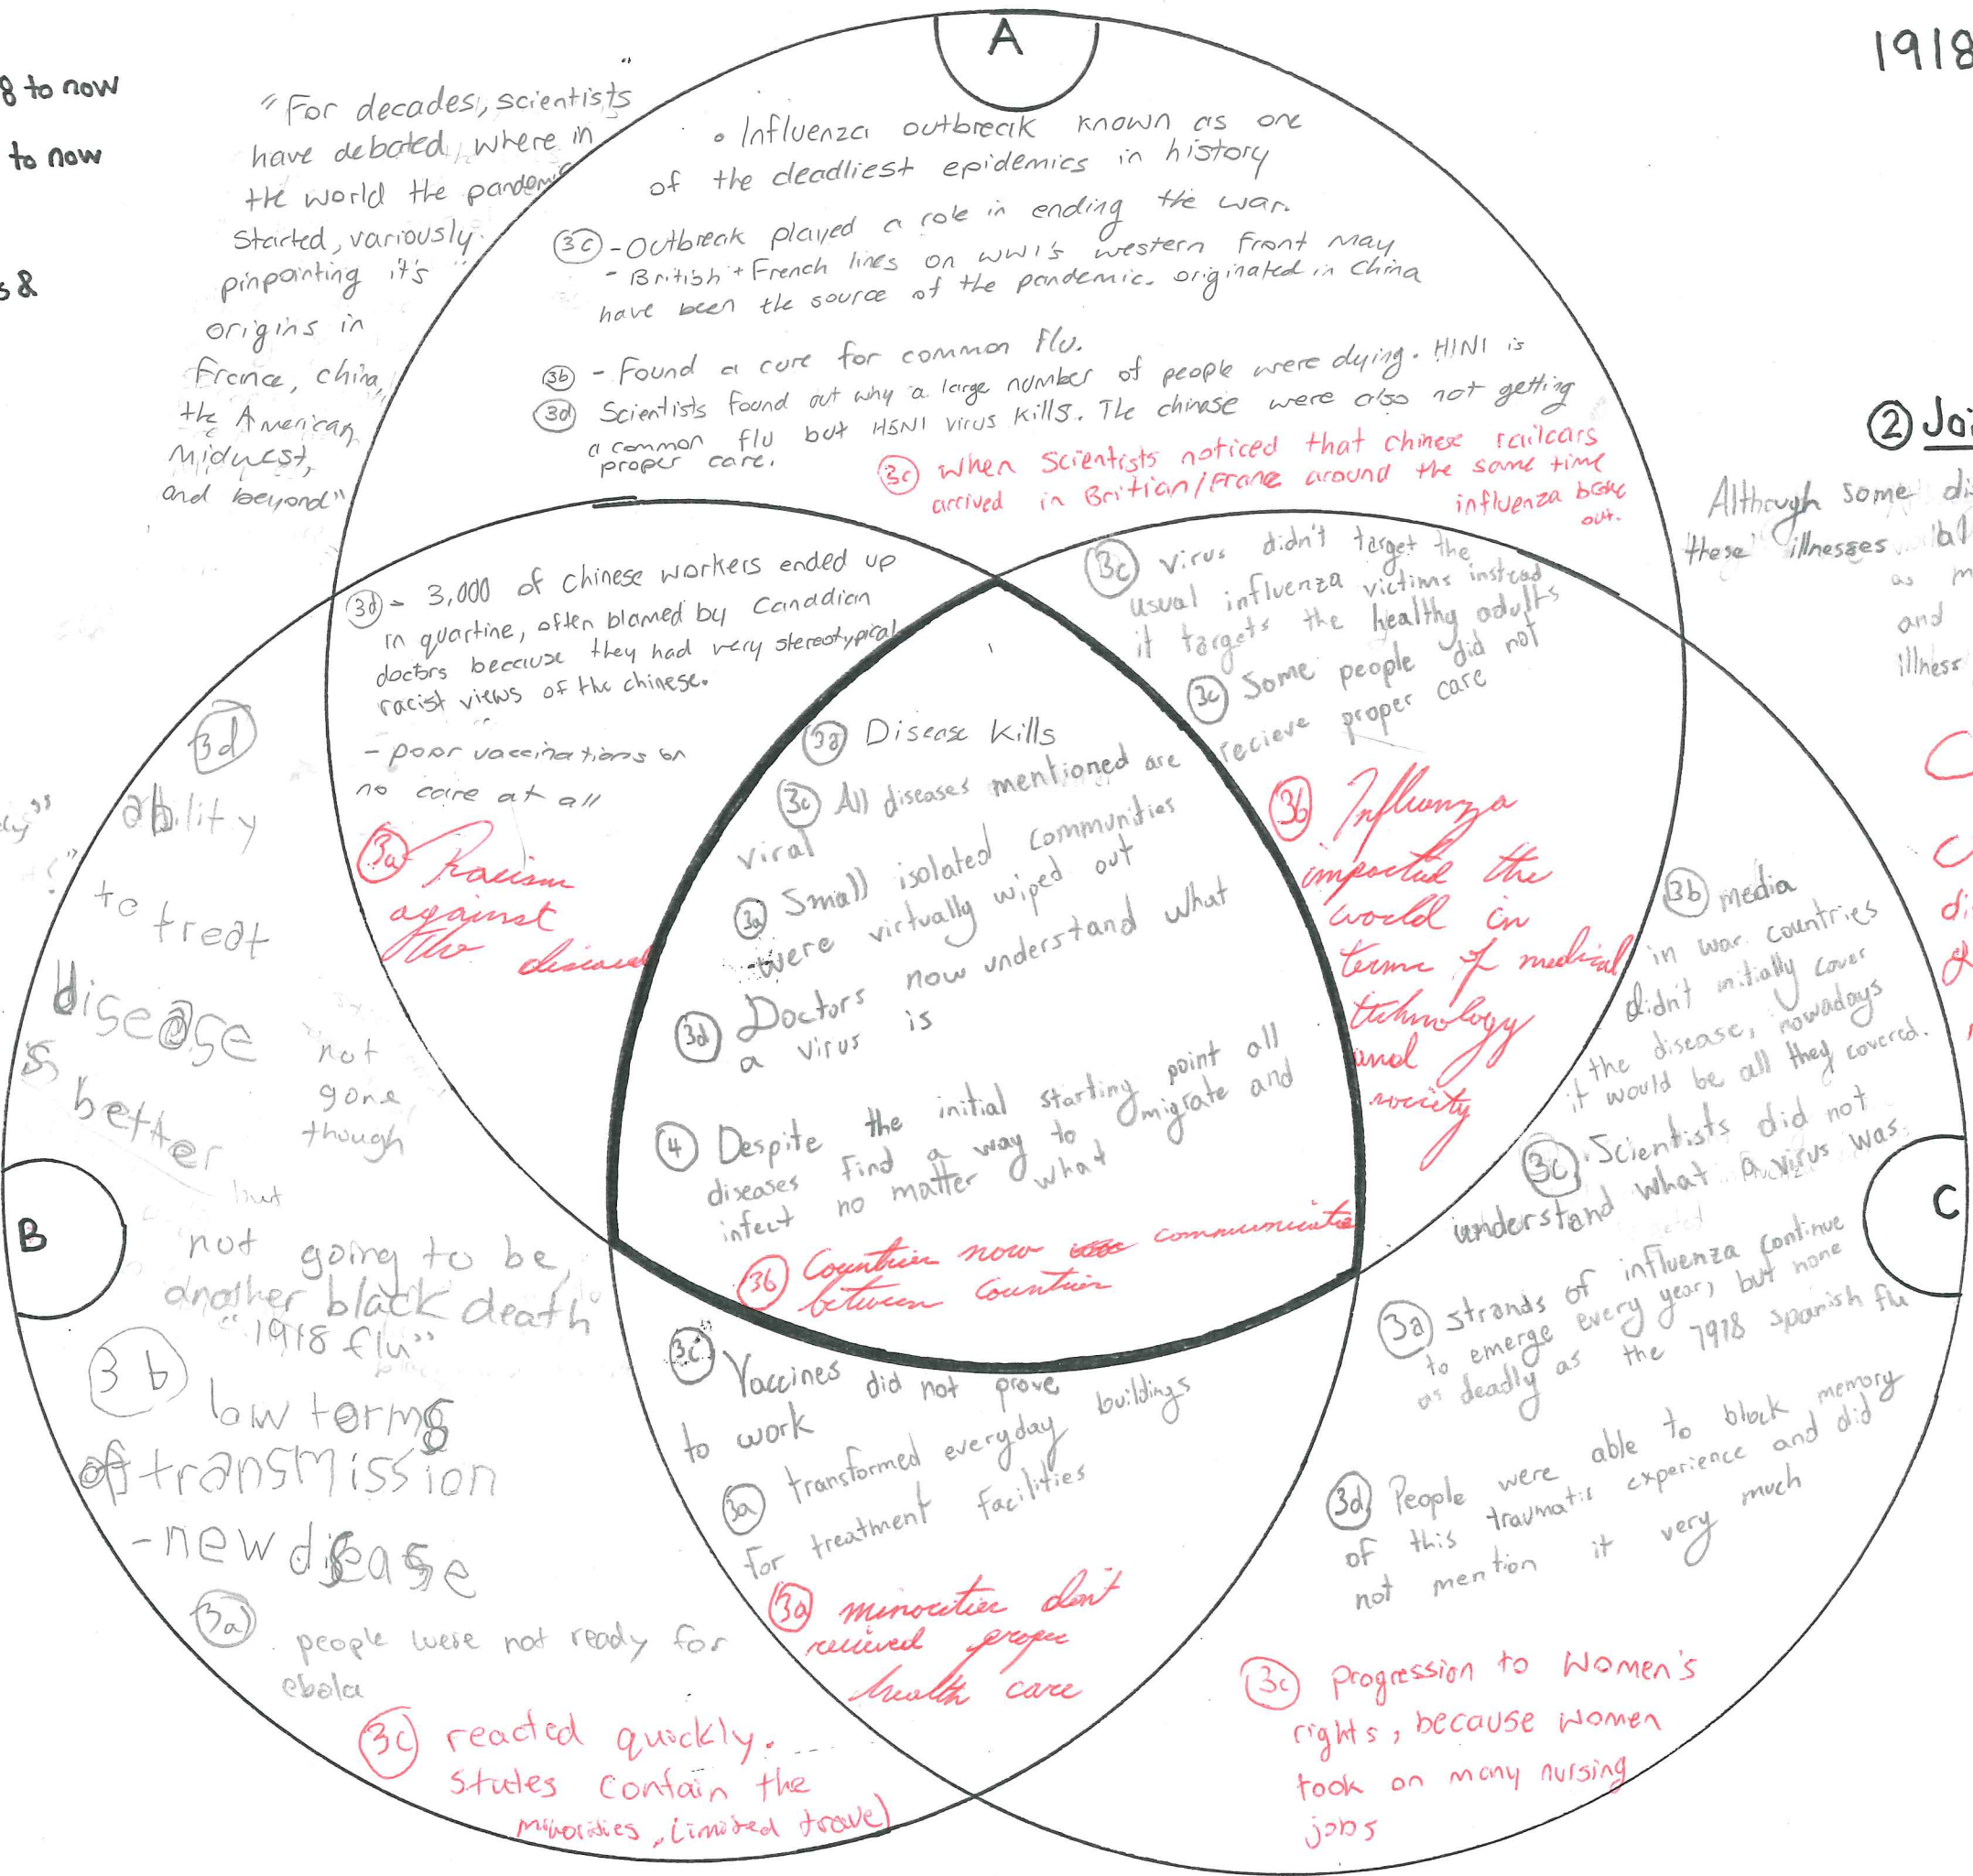 A
1918
8 to now
to now
s &
"For decades, scientists
have debated, where in
the world the pandemic
started, variously
pinpointing it's "
origins in
France, china,
the American
Midwest,
and beyond"
• Influenza outbreak known as one
of the deadliest epidemics in history
3c - Outbreak played a role in ending the war.
- British + French lines on WW1's western Front May
have been the source of the pandemic. originated in China
3b - Found a cure for common Flu.
3d Scientists found out why a large number of people were dying. H1N1 is
a common flu but H5N1 virus kills. The chinese were also not getting
proper care.
3c when scientists noticed that chinese railcars
arrived in Britian/Frane around the same time
influenza broke
out.
2 Joi
Although some di
these illnesses al
as m
and
illness
3d - 3,000 of chinese workers ended up
in quartine, often blamed by Canadian
doctors because they had very stereotypical
racist views of the chinese.
- poor vaccinations or
no care at all
3a Racism
against
the diseased
3c virus didn't target the
usual influenza victims instead
it targets the healthy adults
3c Some people did not
recieve proper care
3b Influenza
impacted the
world in
terms of medical
technology
and
society
3a Disease kills
3c All diseases mentioned are
viral
3a Small isolated communities
were virtually wiped out
3d Doctors now understand what
a virus is
4 Despite the initial starting point all
diseases find a way to migrate and
infect no matter what
3b Countries now communicate
between countries
3d
ability
to treat
disease
is
better
not
gone
though
but
not going to be
another black death
"1918 flu"
B
3b
low terms
of transmission
- new disease
3a
people were not ready for
ebola
3c reacted quickly.
States contain the
minorities, Limited travel
3c Vaccines did not prove
to work
3a transformed everyday buildings
for treatment facilities
3a minorities don't
recieved proper
health care
3b media
in war countries
didn't initially cover
the disease, nowadays
it would be all they covered.
3c Scientists did not
understand what a virus was.
C
3a strands of influenza continue
to emerge every year, but none
as deadly as the 1918 spanish flu
3d People were able to block memory
of this traumatic experience and did
not mention it very much
3c progression to Women's
rights, because women
took on many nursing
jobs